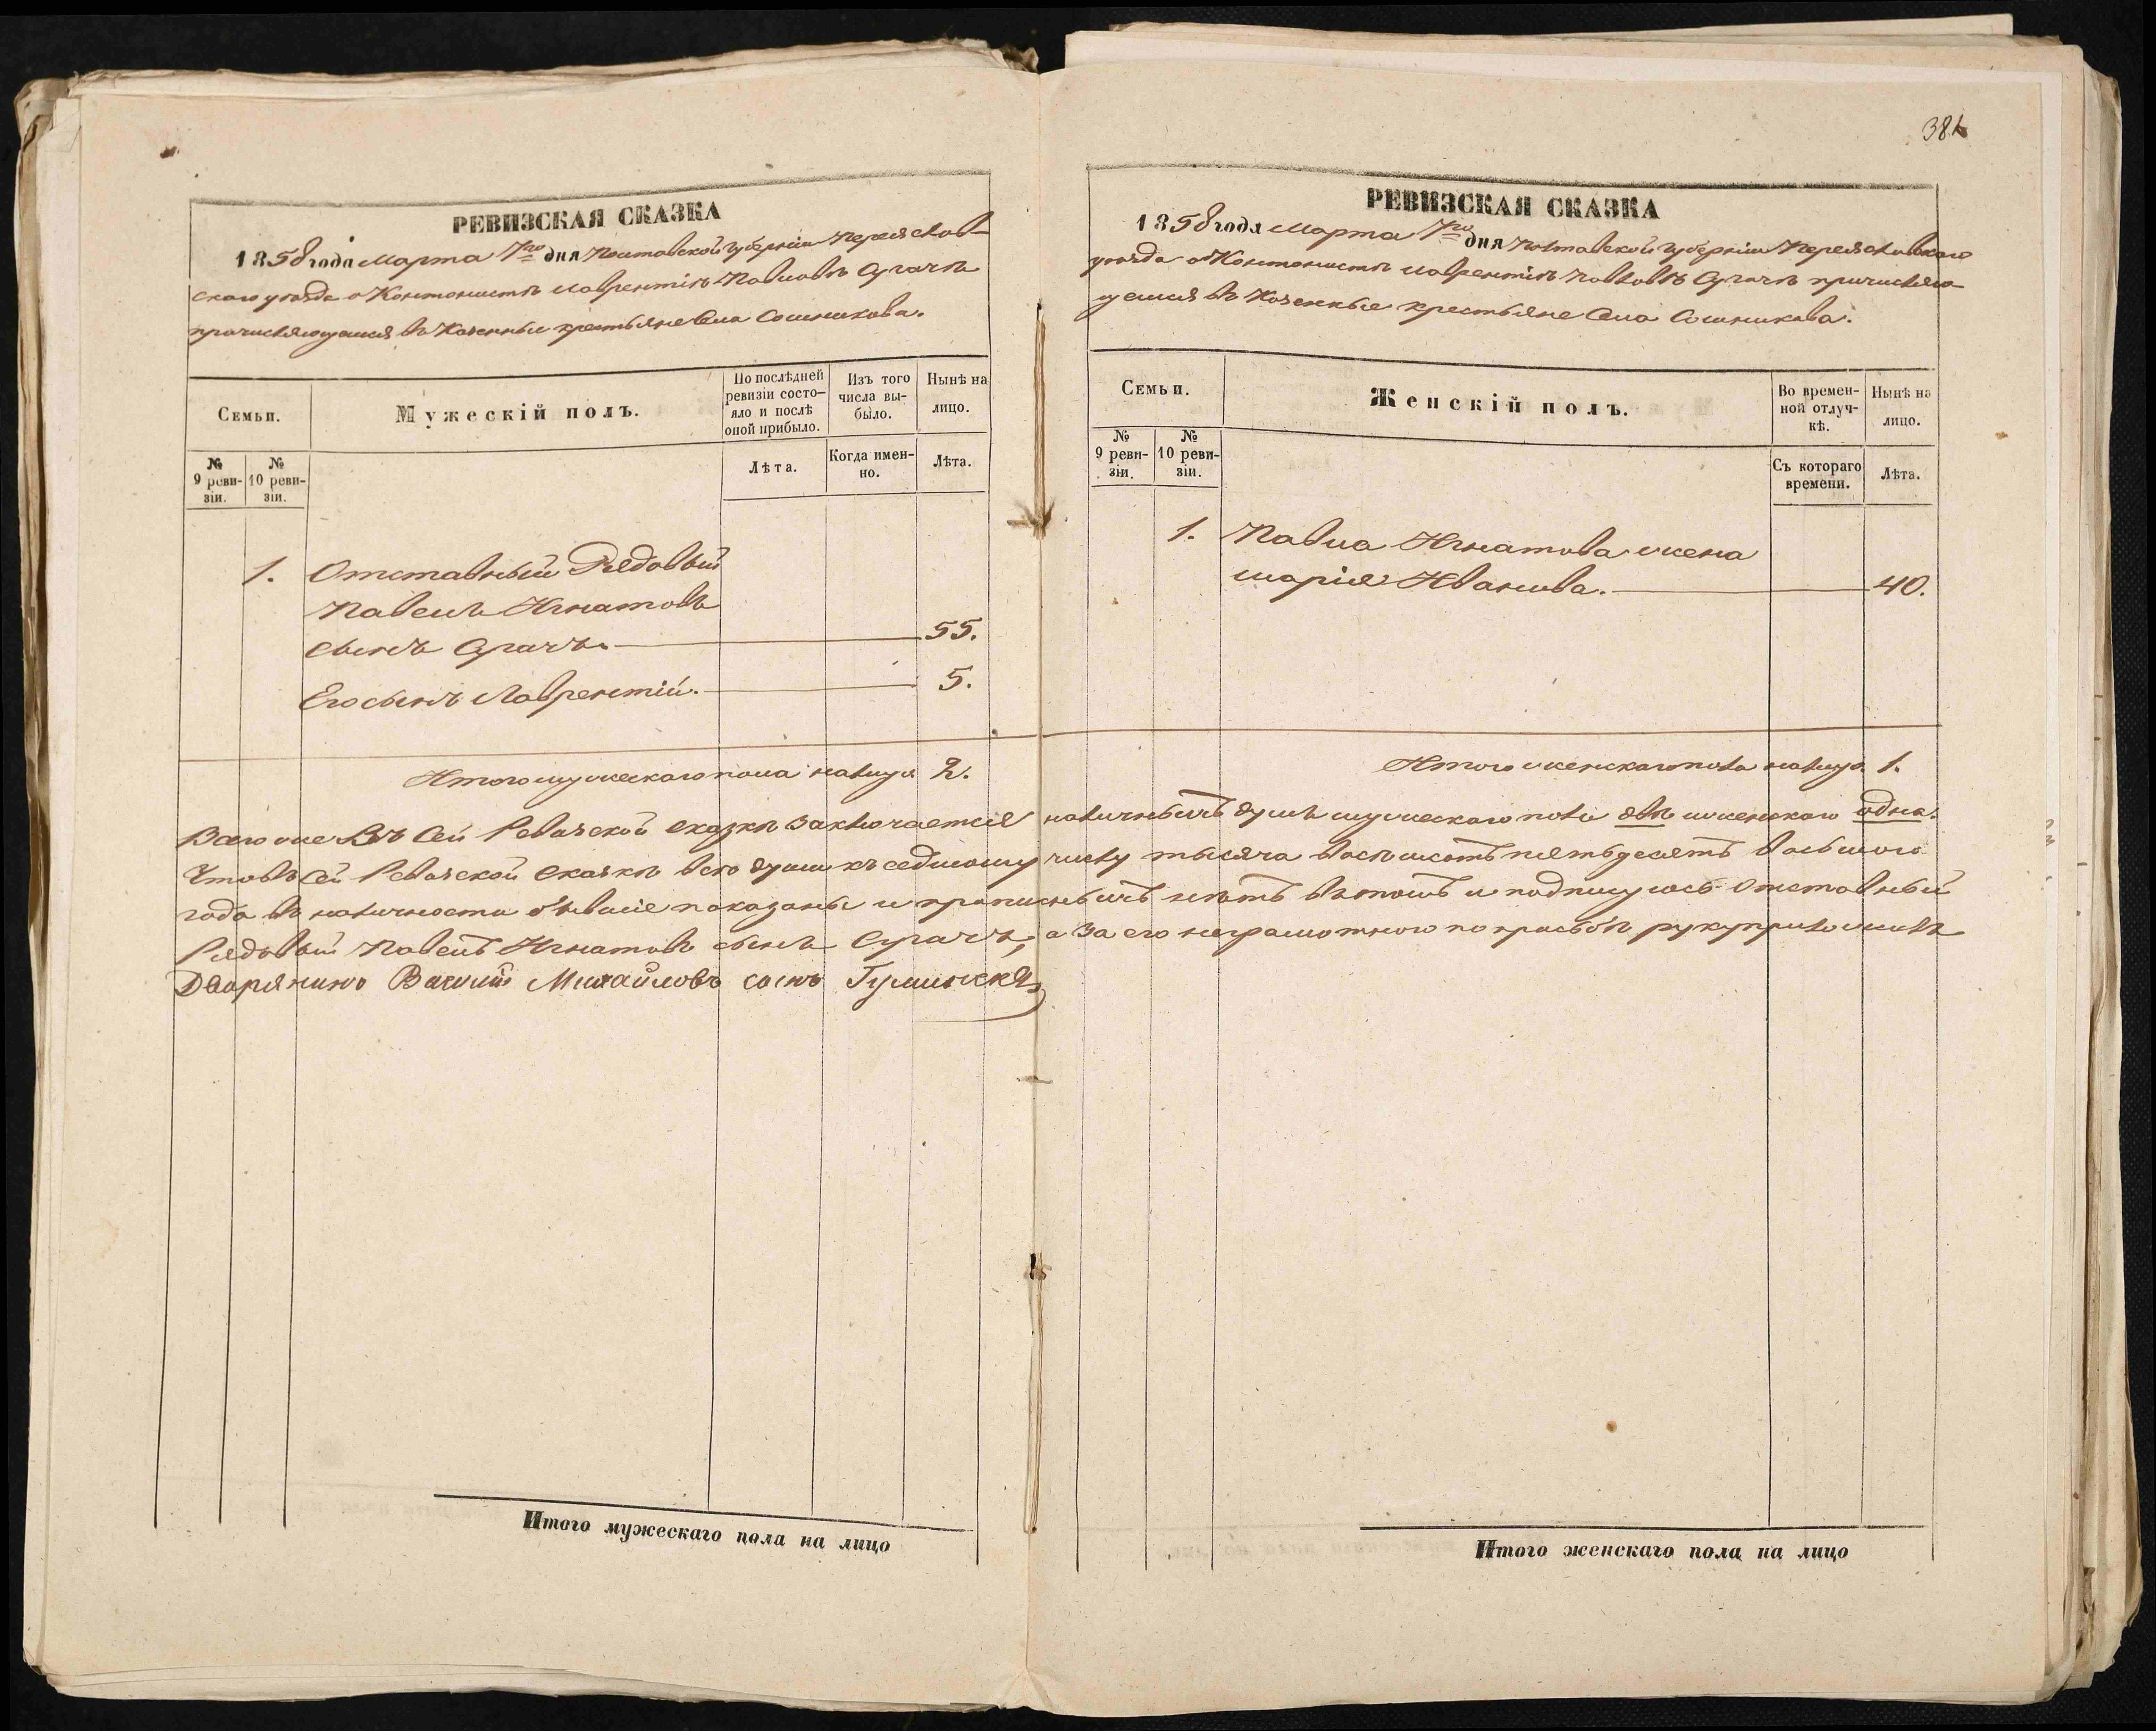 РЕВИЗСКАЯ СКАЗКА
1858 года Марта 7го дня Полтавской Губерніи Переяслов-
скаго уѣзда о Контонистѣ Лаврентіѣ Павловѣ Сугачѣ
причисляющемся въ Казенные крестьяне Села Сошникова.
Семьи.
Мужескій полъ.
По послѣдней ревизіи состо-
яло и послѣ оной прибыло.
Изъ того числа вы-
было.
Нынѣ на лицо.
№ 9 реви-
зіи.
№ 10 реви-
зіи.
Лѣта.
Когда имен-
но.
Лѣта.
1. Отставный Рядовый
Павелъ Игнатовъ
сынъ Сугачъ. 55.
Его сынъ Лаврентій. 5.
Итого мужескаго пола налицо 2.
381
РЕВИЗСКАЯ СКАЗКА
1858 года Марта 7го дня Полтавской Губерніи Переяславскаго
уѣзда о Контонистѣ Лаврентіѣ Павловѣ Сугачѣ причисляю-
щемся въ Казенные крестьяне Села Сошникова.
Семьи.
Женскій полъ.
Во времен-
ной отлуч-
кѣ.
Нынѣ на лицо.
№ 9 реви-
зіи.
№ 10 реви-
зіи.
Съ котораго времени.
Лѣта.
1. Павла Игнатова жена
Марія Иванова. 40.
Итого женскаго пола налицо 1.
Всего же Въ Сей Ревизской сказкѣ заключается наличныхъ душъ мужескаго пола двѣ и женскаго одна.
Что въ Сей Ревизской Сказкѣ всѣ души къ седьмому числу тысяча восѣмсотъ пятьдесятъ восьмого
года въ наличности бывшіе показаны и прописныхъ нѣтъ въ томъ и подпишуюсь Отставный
Рядовый Павелъ Игнатовъ сынъ Сугачъ, а за его неграмотного по прозьбѣ руку приложилъ
Дворянинъ Михайловъ сынъ
Итого мужескаго пола на лицо
Итого женскаго пола на лицо